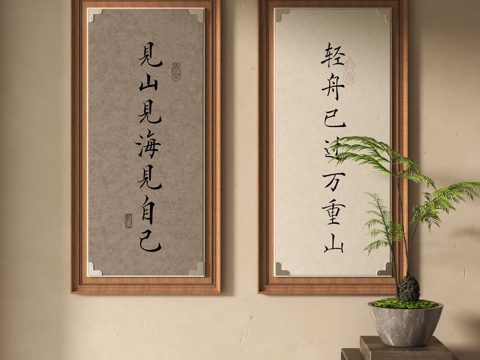 見山見海見自己
轻舟已过万重山